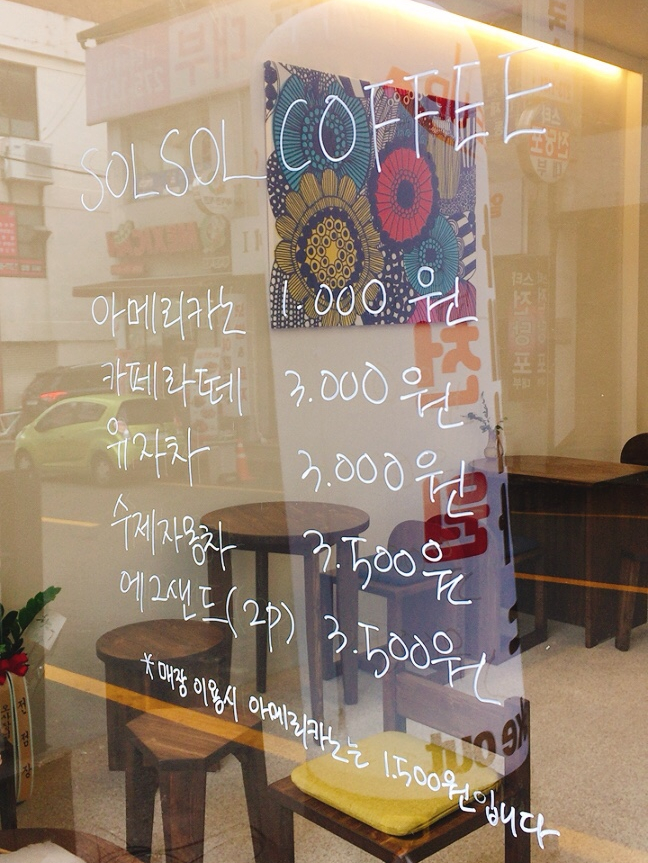 SOLSOL COFFEE
아메리카노 1.000원
카페라떼 3.000원
유자차 3.000원
수제자몽차 3.500원
에그샌드(2p) 3.500원
*매장 이용시 아메리카노는 1.500원입니다